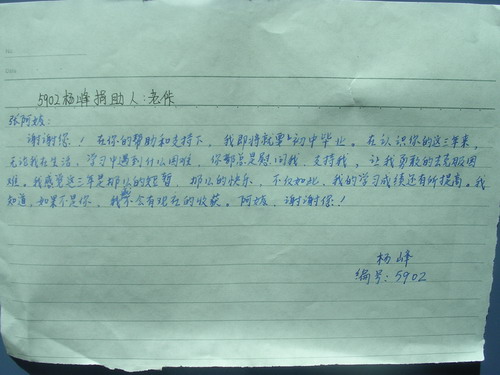 No
Date
5902杨峰捐助人:老佟
张阿姨:
谢谢您!在你的帮助和支持下,我即将就要初中毕业。在认识你的这三年来,
无论我在生活、学习中遇到什么困难,你都总是慰问我,支持我,让我勇敢的去克服困
难。我感觉这三年是那么的短暂,那么的快乐,不仅如此,我的学习成绩还有所提高。我
知道,如果不是你,我不会有现在的收获。阿姨,谢谢您!
杨峰
编号:5902